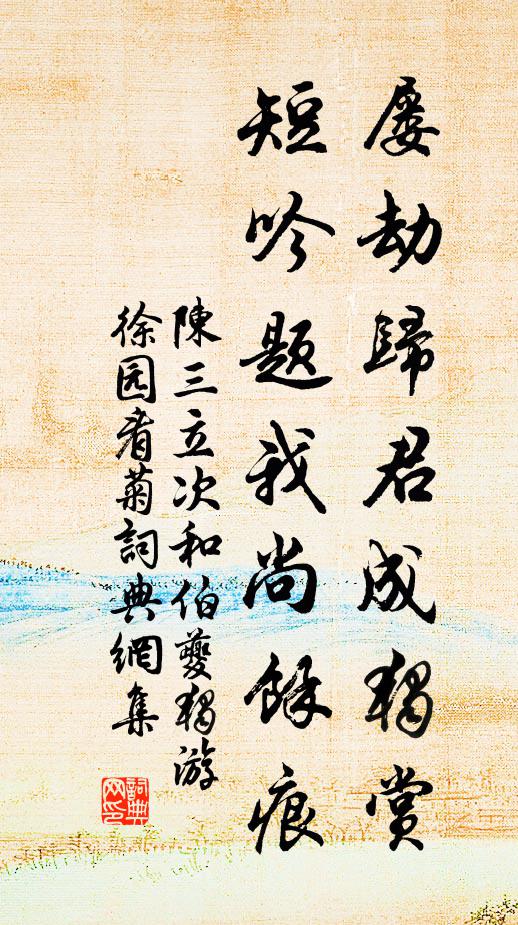 屡劫歸君成獨赏
短吟題我尚餘痕
陳三立次和伯夔獨游
徐园看菊詞典網集
詞典
网印